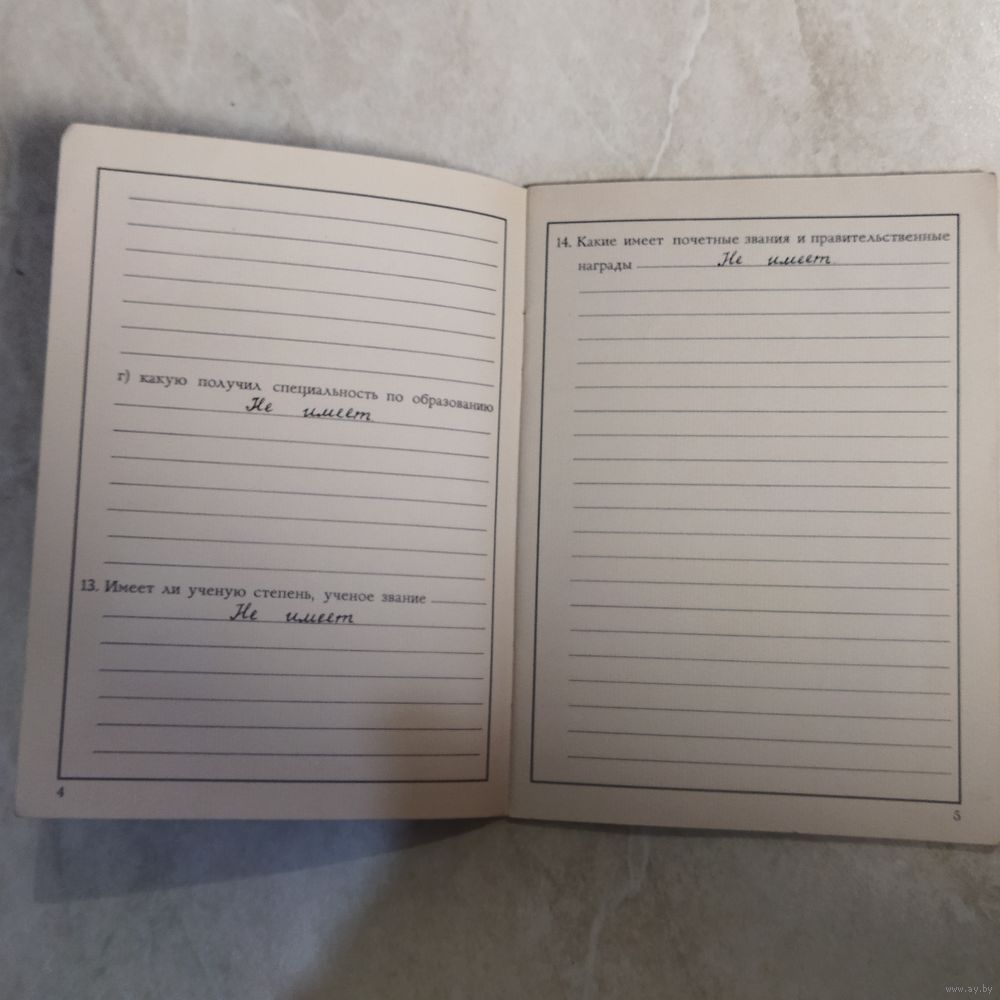 г) какую получил специальность по образованию
Не имеет.
13. Имеет ли ученую степень, ученое звание
Не имеет
4
14. Какие имеет почетные звания и правительственные
награды Не имеет.
5
www.ay.by